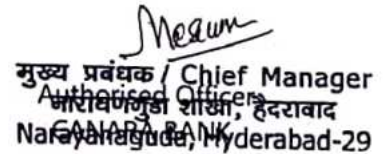 मुख्य प्रबंधक / Chief Manager
Authorised Officer
नारायणगुडा शाखा, हैदराबाद
CANARA BANK
Narayanaguda, Hyderabad-29